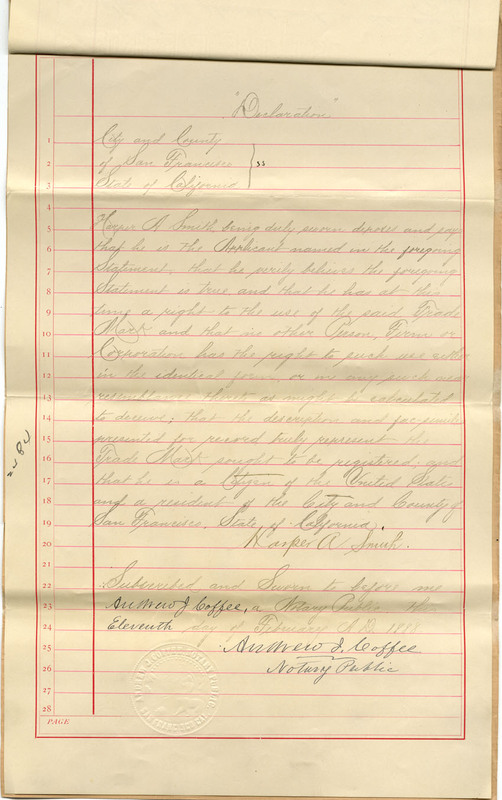 "Declaration"
1 City and County
2 of San Francisco } ss
3 State of California
4
5 Harper A Smith being duly sworn deposes and says
6 that he is the Applicant named in the foregoing
7 Statement, that he verily believes the foregoing
8 Statement is true and that he has at this
9 time a right to the use of the said Trade
10 Mark and that no other Person, Firm or
11 Corporation has the right to such use either
12 in the identical form, or in any such near
13 resemblance thereto as might be calculated
14 to deceive; that the description and fac-simile
15 presented for record truly represent the
16 Trade Mark sought to be registered and
17 that he is a Citizen of the United States
18 and a resident of the City and County of
19 San Francisco, State of California.
20 Harper A Smith.
21
22 Subscribed and Sworn to before me
23 Andrew J Coffee, a Notary Public this
24 Eleventh day of February A D 1888
25 Andrew J. Coffee
26 Notary Public
27
28
PAGE